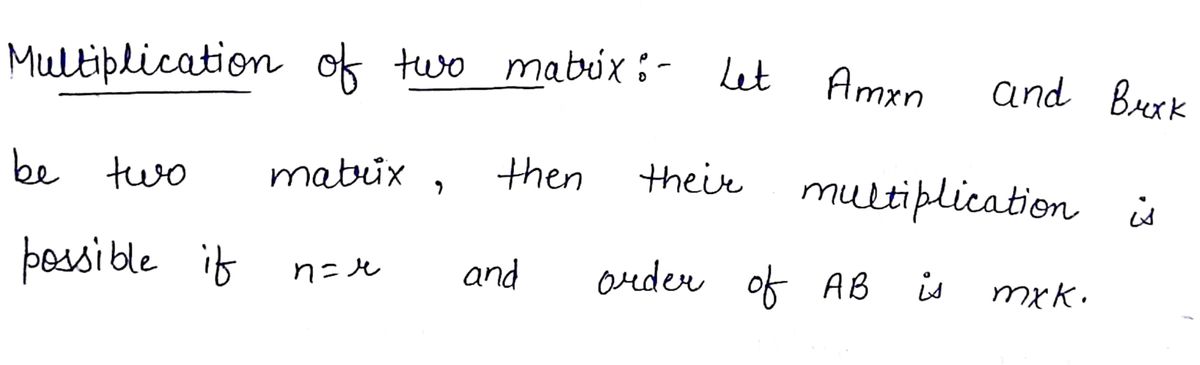 Multiplication of two matrix :- Let Amxn and Brxk
be two matrix , then their multiplication is
possible if n=r and order of AB is mxk.